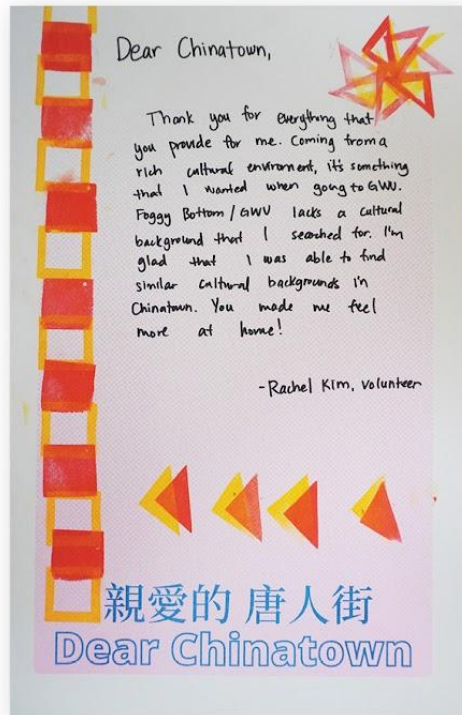 Dear Chinatown,
Thank you for everything that
you provide for me. Coming from a
rich cultural enviroment, it's something
that I wanted when going to GWU.
Foggy Bottom / GWU lacks a cultural
background that I searched for. I'm
glad that I was able to find
similar cultural backgrounds in
Chinatown. You made me feel
more at home!
-Rachel Kim, volunteer
親愛的 唐人街
Dear Chinatown